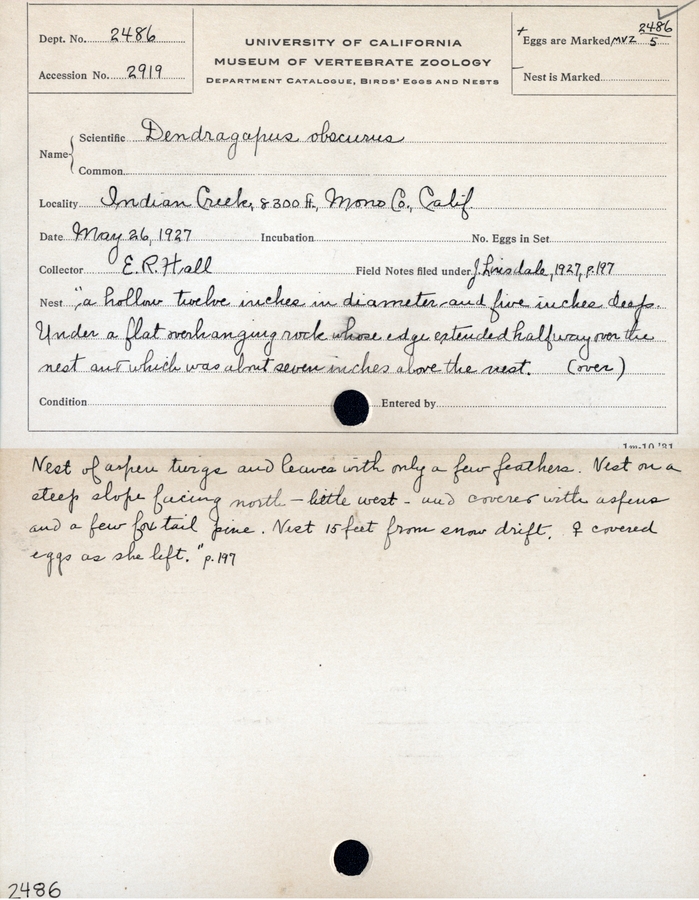 Dept. No. 2486
Accession No. 2919
UNIVERSITY OF CALIFORNIA
MUSEUM OF VERTEBRATE ZOOLOGY
DEPARTMENT CATALOGUE, BIRDS' EGGS AND NESTS
+ Eggs are Marked MVZ 2486/5
– Nest is Marked
Name
Scientific Dendragapus obscurus
Common
Locality Indian Creek, 8300 ft., Mono Co., Calif.
Date May 26, 1927 Incubation No. Eggs in Set
Collector E.R. Hall Field Notes filed under J. Linsdale, 1927, p.197
Nest "a hollow twelve inches in diameter and five inches deep.
Under a flat overhanging rock whose edge extended halfway over the
nest and which was about seven inches above the nest. (over)
Condition Entered by
1m-10,'31
Nest of aspen twigs and leaves with only a few feathers. Nest on a
steep slope facing north – little west – and covered with aspens
and a few fox tail pine. Nest 15 feet from snow drift. ♀ covered
eggs as she left." p.197
2486